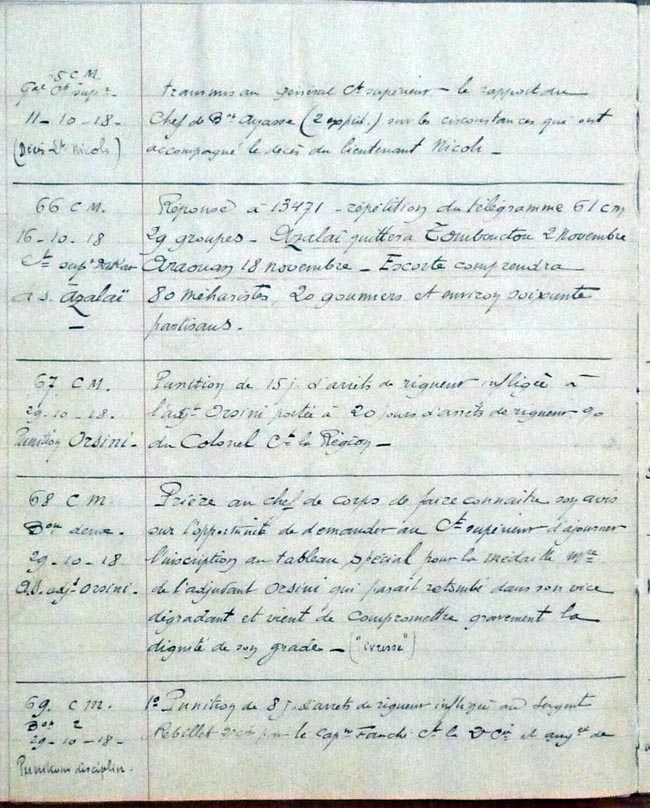 5 C M
Gal Ct supr
11-10-18-
(Décès Lt Nicoli)
transmis au général Ct supérieur - le rapport du
Chef de Bon Ayasse (2 expéd.) sur les circonstances qui ont
accompagné le décès du lieutenant Nicoli -
66 C M.
16-10-18
Ct supr Dakar
a.s. Azalaï
Réponse à 13471 - répétition du télégramme 61 CM
29 groupes - Azalaï quittera Tombouctou 2 Novembre
Araouan 18 novembre - Escorte comprendra
80 méharistes, 20 goumiers et environ soixante
partisans -
67 C M.
29-10-18.
Punition Orsini -
Punition de 15 j. d'arrêts de rigueur infligée à
l'adjt Orsini portée à 20 jours d'arrêts de rigueur
du Colonel Ct la Région -
68 C M
Bon
29-10-18
a.s. adjt Orsini -
Prière au chef de corps de faire connaître son avis
sur l'opportunité de demander au Ct supérieur d'ajourner
l'inscription au tableau spécial pour la médaille Mre
de l'adjudant Orsini qui parait retombé dans son vice
dégradant et vient de compromettre gravement la
dignité de son grade - ("ivresse")
69. C M.
Bon 2
29-10-18-
Punitions disciplin.
1° Punition de 8 j. d'arrêts de rigueur infligée au Sergent
Rebillet par le Capne Ct la 2e Cie et augtée de